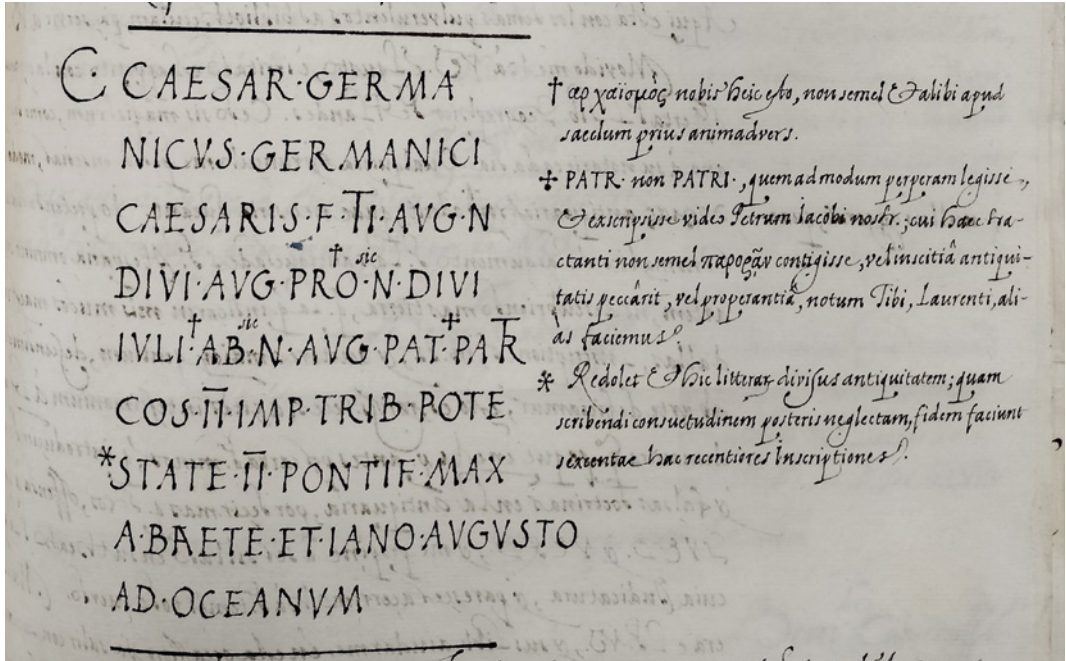 C· CAESAR·GERMA
NICVS·GERMANICI
CAESARIS·F·TI·AVG·N
DIVI·AVG·PRO·N·DIVI
† sic
IVLI·AB·N·AVG·PAT·PATR
† sic ✢
COS·II·IMP·TRIB·POTE
*STATE·II·PONTIF·MAX
A·BAETE·ET·IANO·AVGVSTO
AD·OCEANVM
† αρχαϊσμός nobis heic esto, non semel & alibi apud
saeclum prius animadvers.
✢ PATR· non PATRI·, quemadmodum perperam legisse,
& exscripsisse video Petrum Iacobi nostr.; cui haec tra-
ctanti non semel παρορᾶν contigisse, vel inscitiâ antiqui-
tatis peccârit, vel properantiâ, notum Tibi, Laurenti, ali-
às faciemus.
* Redolet & hic litterar divisus antiquitatem; quam
scribendi consuetudinem posteris neglectam, fidem faciunt
sexcentae hac recentiores Inscriptiones.